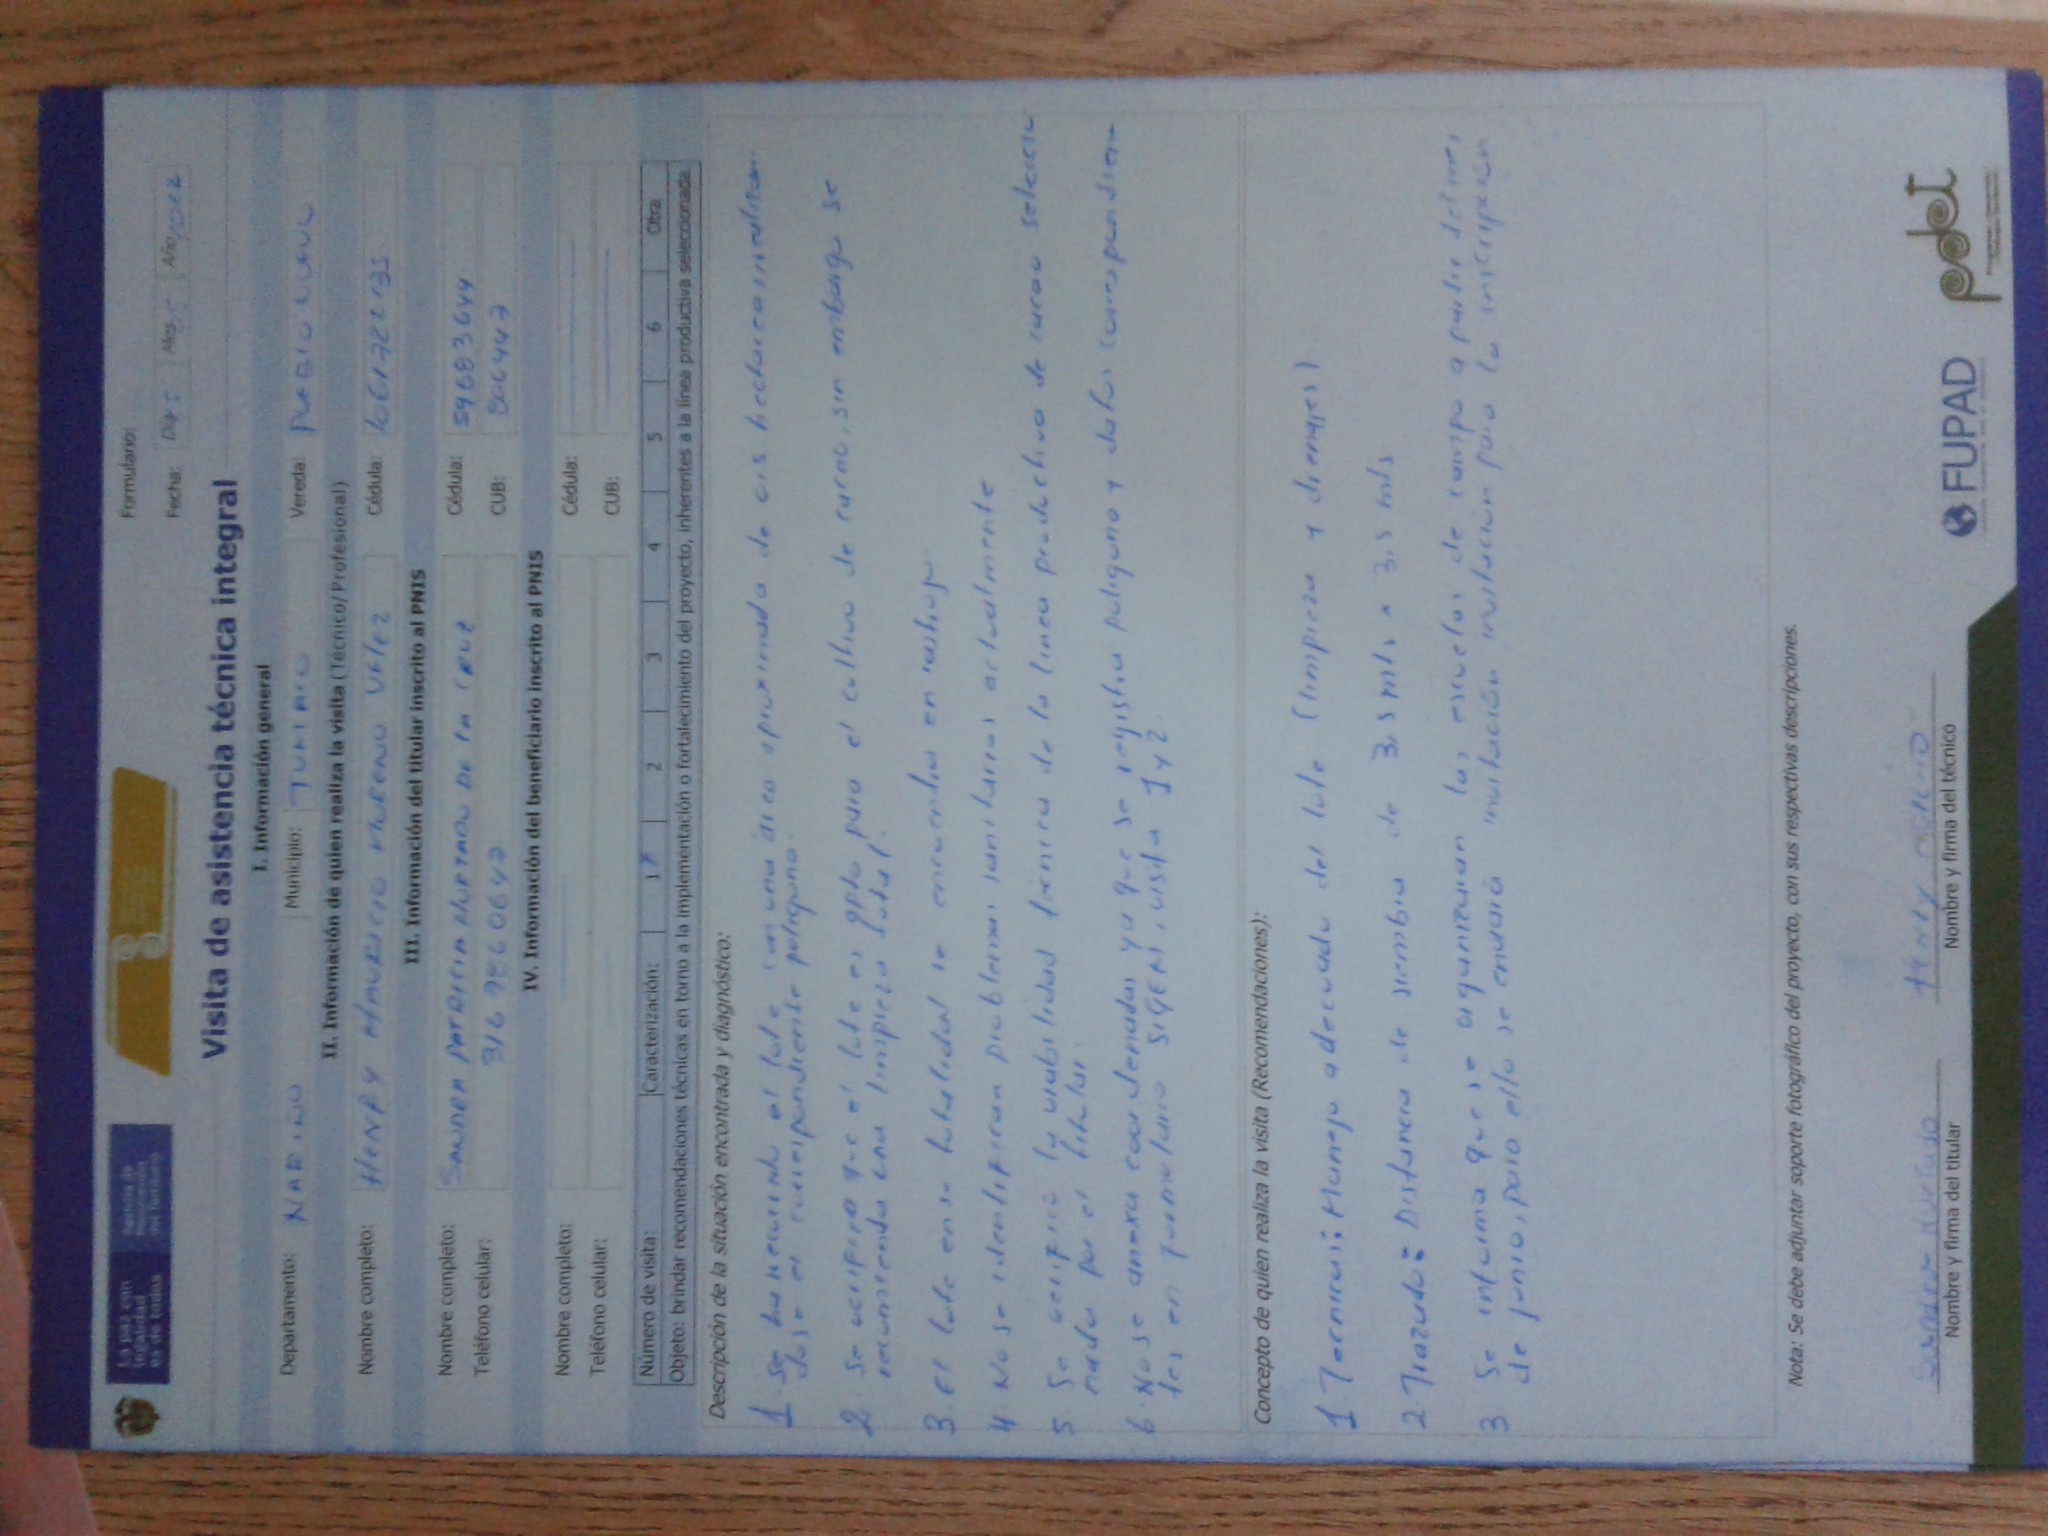 La paz con
legalidad
es de todos
Agencia de
Renovación
del Territorio
Formulario:
Fecha: Día 5 Mes 05 Año 2022
Visita de asistencia técnica integral
I. Información general
Departamento: NARIÑO Municipio: TUMACO Vereda: PUEBLO NUEVO
II. Información de quien realiza la visita (Técnico/Profesional)
Nombre completo: HENRY MAURICIO MORENO VELEZ Cédula:
III. Información del titular inscrito al PNIS
Nombre completo: SANDRA PATRICIA HURTADO DE LA CRUZ Cédula: 59683644
Teléfono celular: CUB:
IV. Información del beneficiario inscrito al PNIS
Nombre completo: Cédula:
Teléfono celular: CUB:
Número de visita: Caracterización: 1 2 3 4 5 6 Otra
Objeto: brindar recomendaciones técnicas en torno a la implementación o fortalecimiento del proyecto, inherentes a la línea productiva seleccionada.
Descripción de la situación encontrada y diagnóstico:
1. Se ha recorrido el lote con una area aproximada de
dose el correspondiente poligono.
2. Se verifica que el lote es apto para el cultivo de cacao, sin embargo se
recomienda una limpieza total.
3. El lote en su totalidad se encuentra en rastrojo.
4. No se identifican problemas sanitarios actualmente
5. Se verificó la viabilidad tecnica de la linea productiva de cacao seleccio
nada por el titular.
6. No se anexa coordenadas ya que se registra poligono y datos correspondien
tes en formulario SIGENI, visita 1 y 2.
Concepto de quien realiza la visita (Recomendaciones):
1 Tecnicas: Manejo adecuado del lote (limpieza y drenajes)
2 Trazado: Distancia de siembra de 3.5 mts x 3.5 mts
3 Se informa que se organizaran las escuelas de campo a partir del mes
de junio, para ello se enviará invitación para la inscripción
Nota: Se debe adjuntar soporte fotográfico del proyecto, con sus respectivas descripciones.
Sandra Hurtado
Nombre y firma del titular
Henry Moreno
Nombre y firma del técnico
FUPAD
pdet